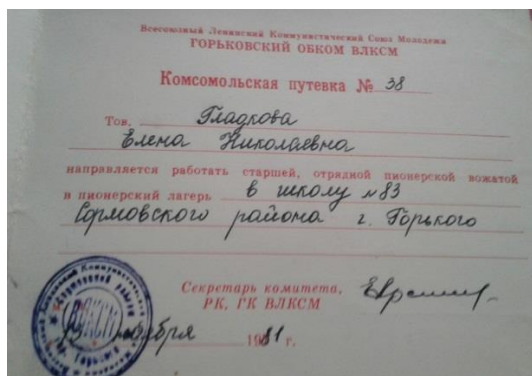 Всесоюзный Ленинский Коммунистический Союз Молодежи
ГОРЬКОВСКИЙ ОБКОМ ВЛКСМ
Комсомольская путевка № 38
Тов. Гладкова
Елена Николаевна
направляется работать старшей, отрядной пионерской вожатой
в пионерский лагерь в школу №83
Сормовского района г. Горького
Секретарь комитета,
РК, ГК ВЛКСМ
ноября 1981 г.